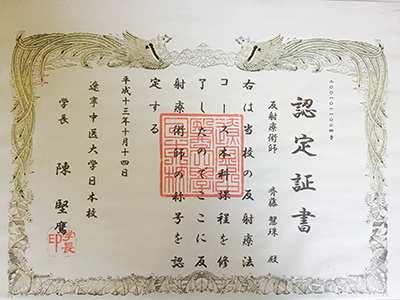 認定証書
反射療術師
齊藤 慧珠 殿
右は当校の反射療法
コース本科課程を修
了したのでここに反
射療術師の称号を認
定する
平成十三年十月十四日
遼寧中医大学日本校
学長 陳 堅鷹
学長印